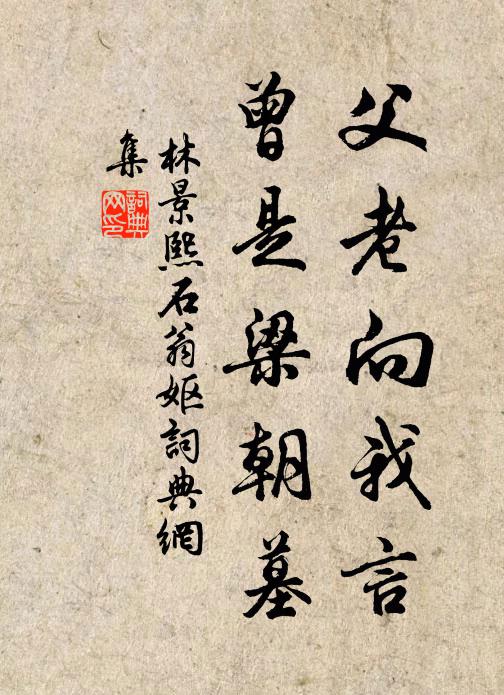 父老向我言
曾是梁朝墓
林景熙石翁妪詞典網
集
詞典
网印